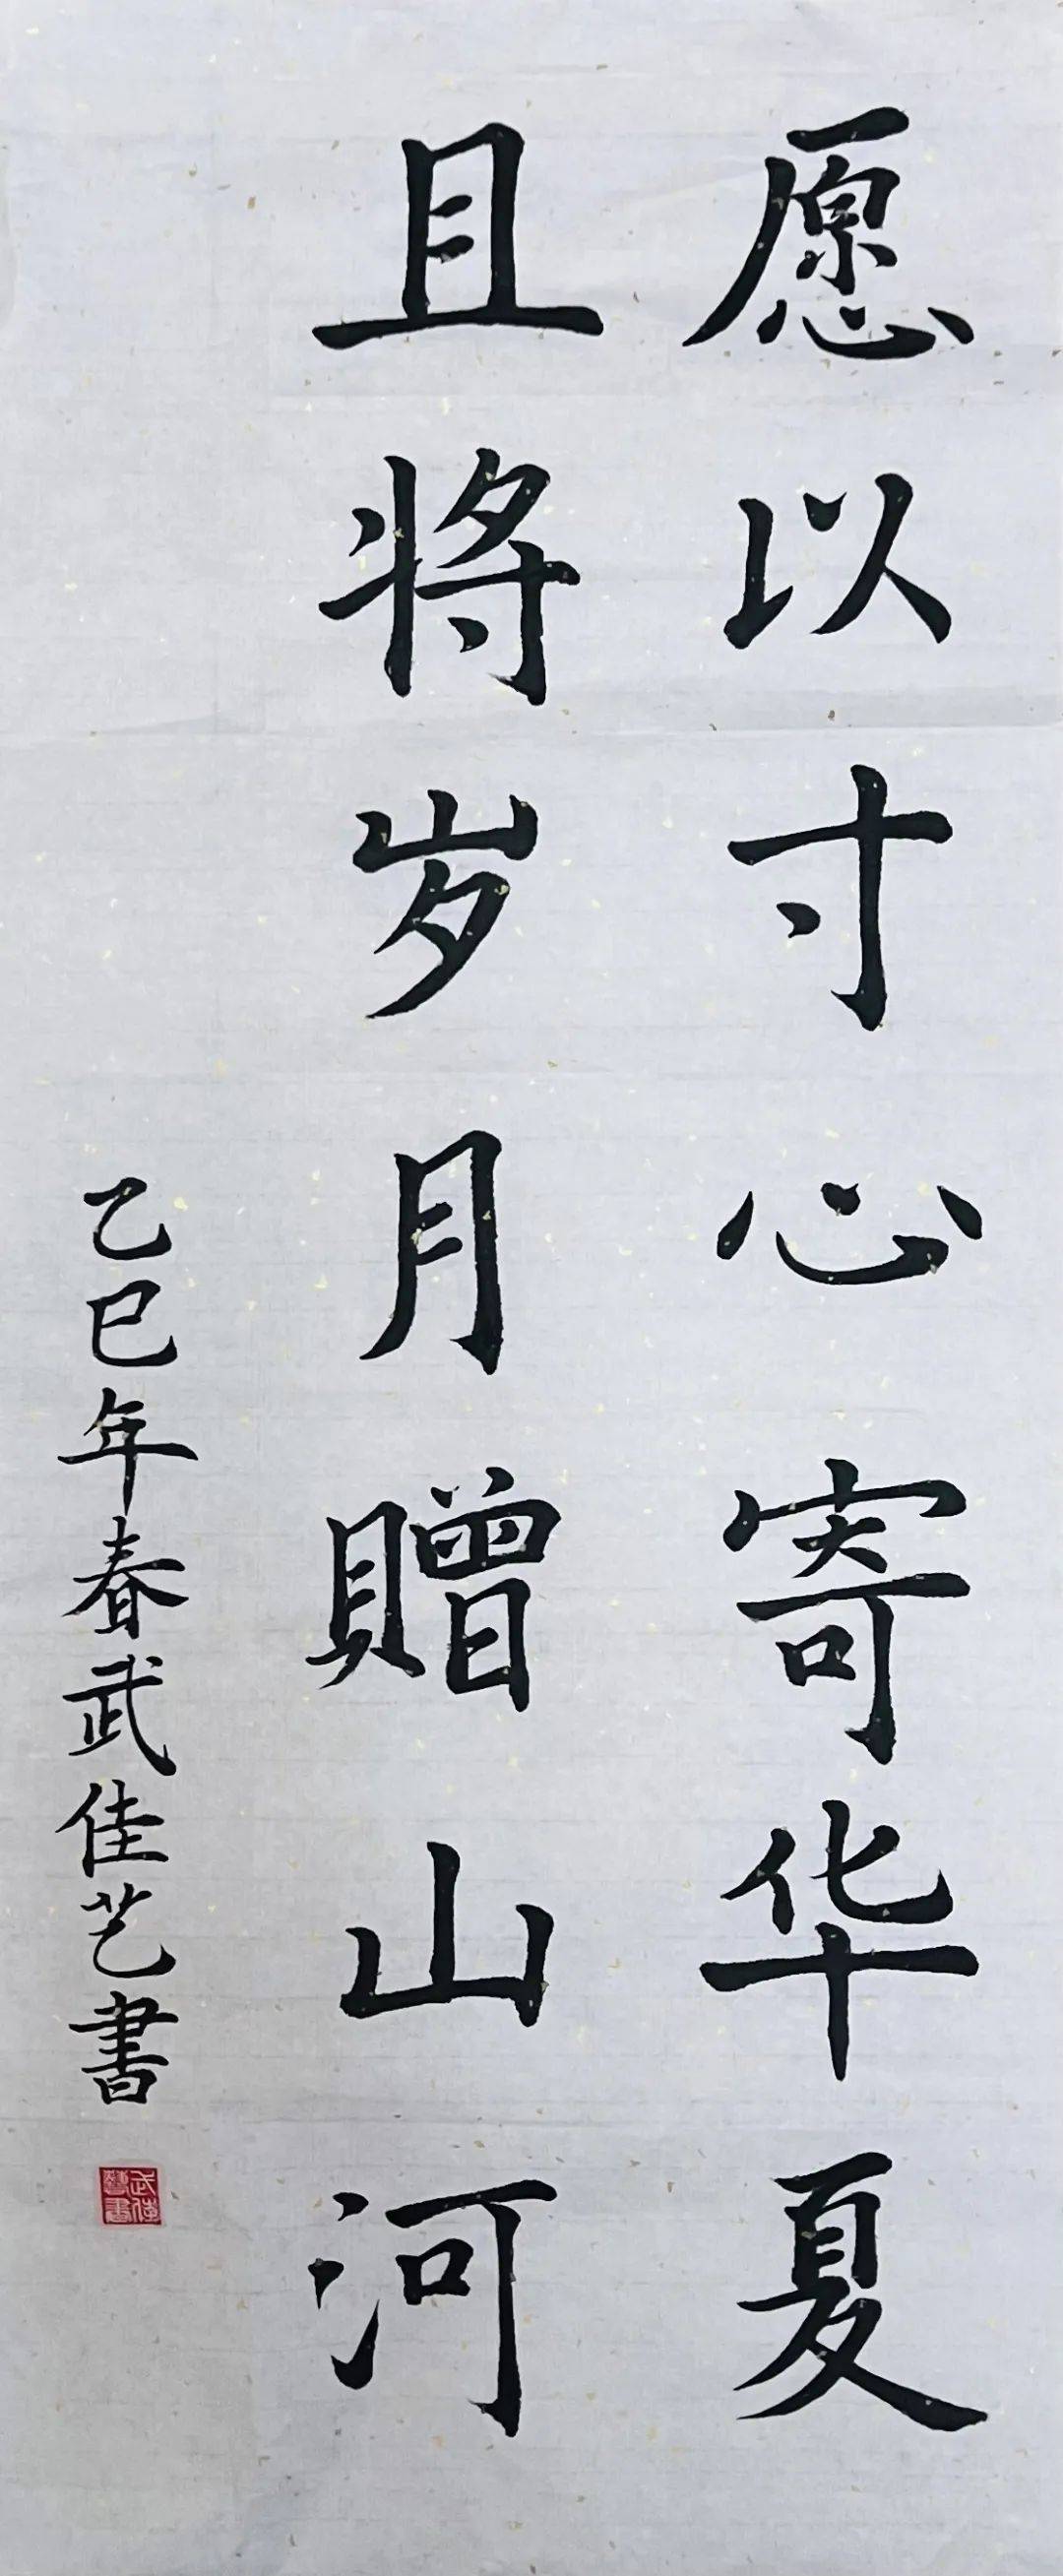 愿以寸心寄华夏
且将岁月赠山河
乙巳年春武佳艺書